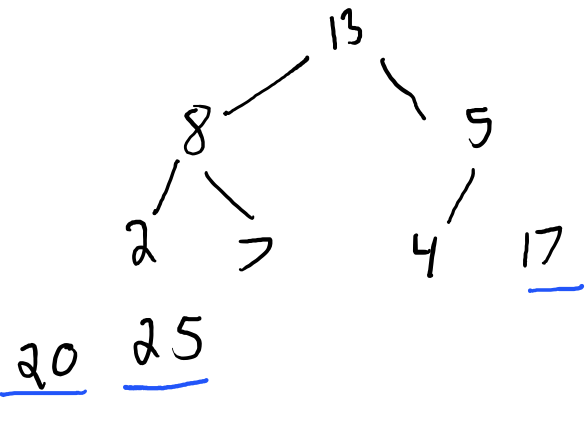 13
8 5
2 7 4 17
20 25